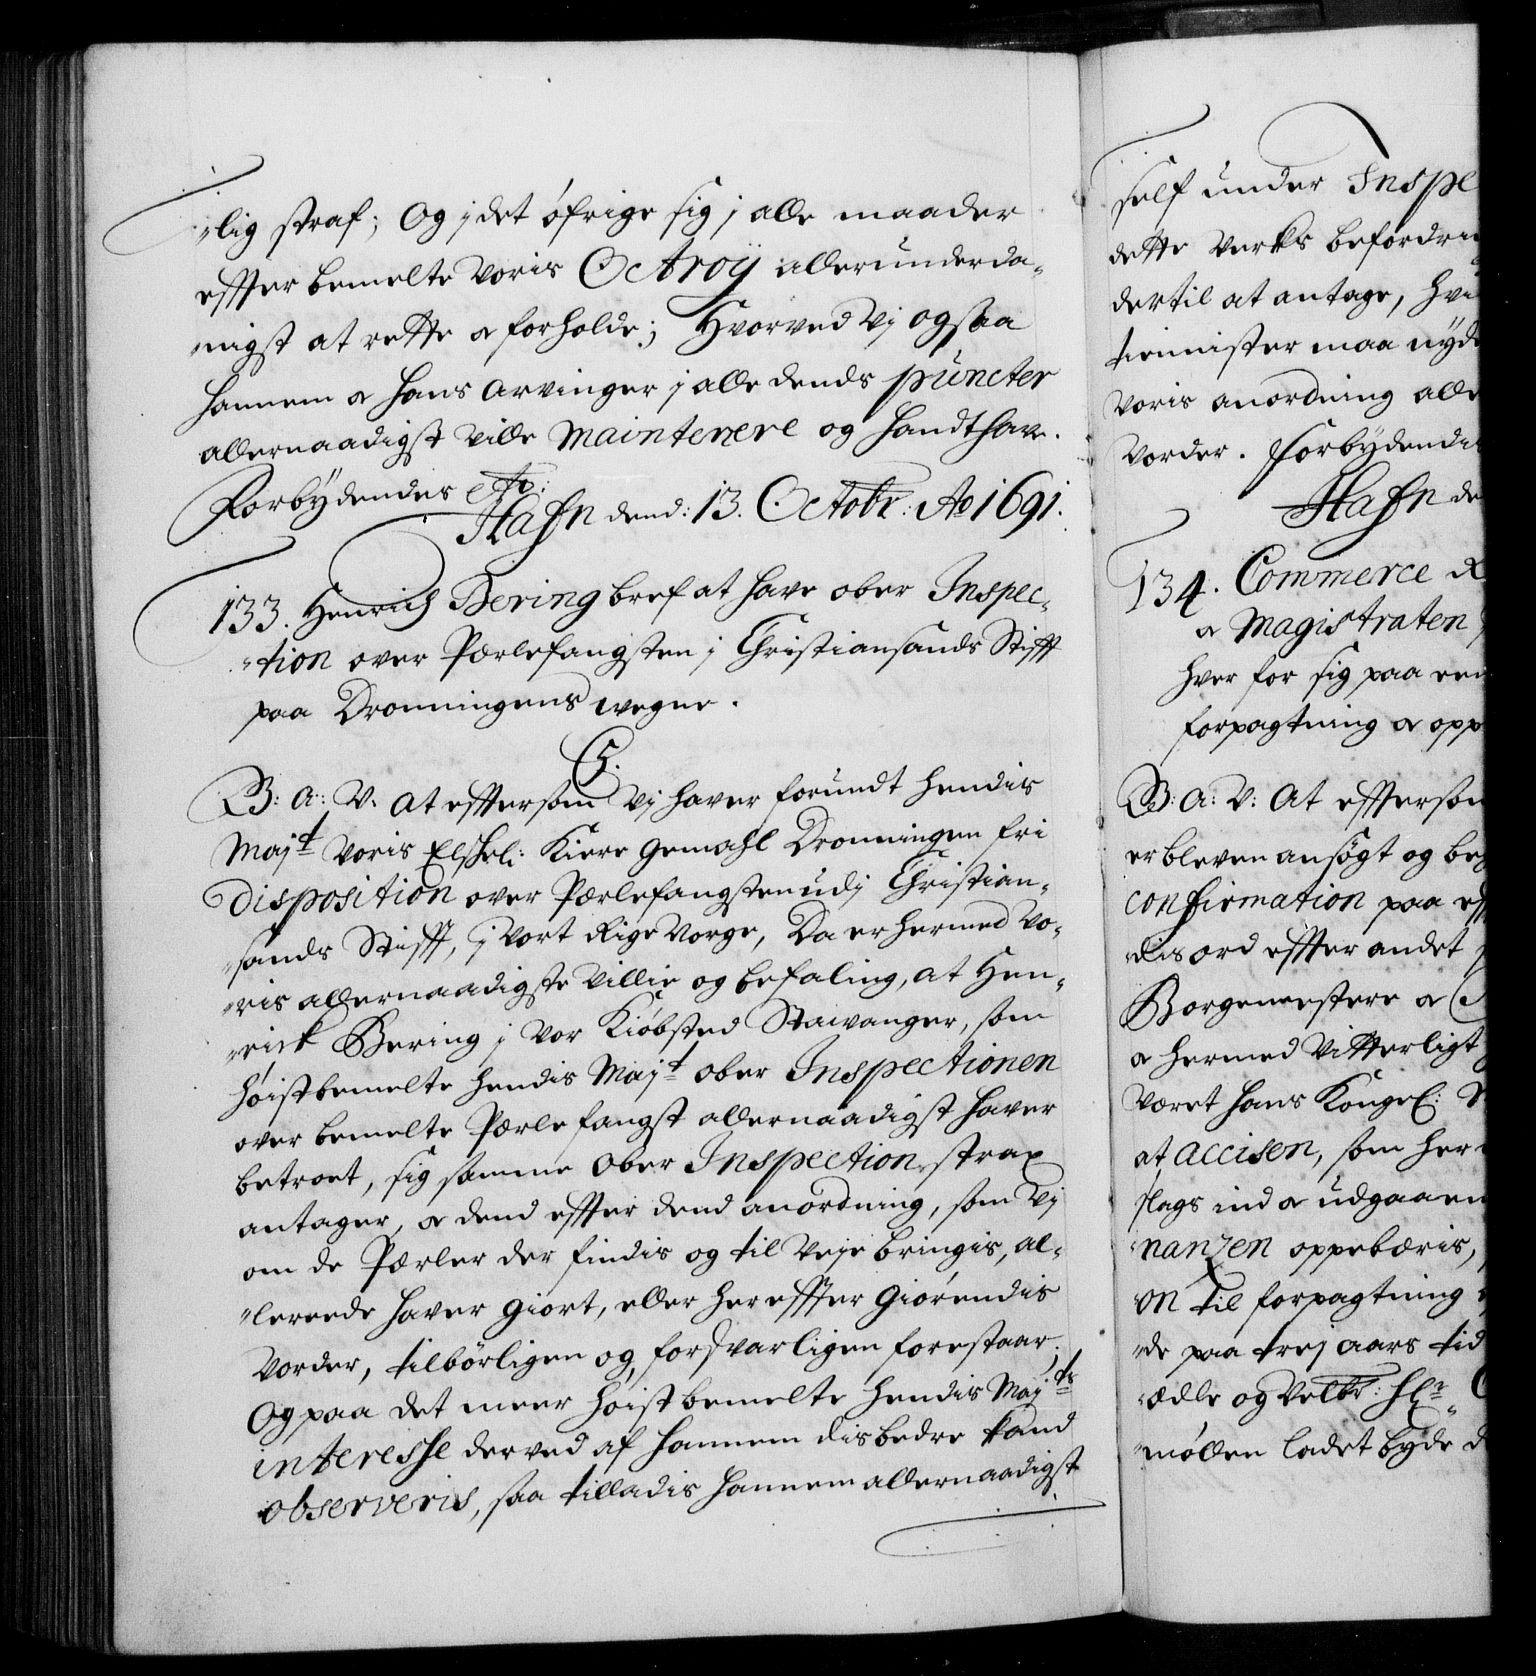 "lig straf; Og j det öfrige sig j alle maader
effter bemelte voris Octroÿ allerunderda-
"nigst at rette & forholde; Hvorved Vj ogsaa
hannem & hans arvinger j alle dends puncter
allernaadigst ville maintenere og handthave.
Forbÿdendes etc:
Hafn dend: 13. Octobr: Ao 1691.
133. Henrich Bering bref at have ober Inspec-
"tion over Pærlefangsten j Christiansands Stifft
paa Dronningens wegne.
C5.
G: A: V: At efftersom Vj haver forundt hendis
Majt voris Elskel: Kiere Gemahl Dronningen fri
disposition over Pærlefangsten udj Christian-
"sands Stifft, j vort Rige Norge, Da er hermed vo-
"ris allernaadigste Villie og befaling, at Hen-
"rick Bering j vor Kiöbsted Stawanger, som
höistbemelte hendis Majt ober Inspectionen
over bemelte Pærle fangst allernaadigst haver
betroet, sig samme Ober Inspection strax
antager, & dend effter dend anordning, som Vj
om de Pærler der findis og til veje bringis, al-
"lereede haver giort, eller her effter giörendis
vorder, tilbörligen og forsvarligen forestaar;
Og paa det meer höist bemelte hendis Majts
interesse derved af hannem disbedre kand
observeris, saa tilladis hannem allernaadigst
self under Inspe
dette verks befordri
dertil at antage, hvi
tienister maa nÿd
voris anordning alle
vorder. Forbÿdendis
Hafn de
134. Commerce R
& Magistraten
hver for sig paa een
forpagtning & opp
G: A: V: At effterson
er bleven ansögt og beg
confirmation paa eff
"dis ord effter andet
Borgemestere &
& hermed Vitterligt
været hans Kongel:
at Accisen, som her
slags ind & udgaaen
"nanzen oppebæris,
on til forpagtning
"de paa trej aars tid
"ædle og Velbr: Hr
"möllen ladet byde d